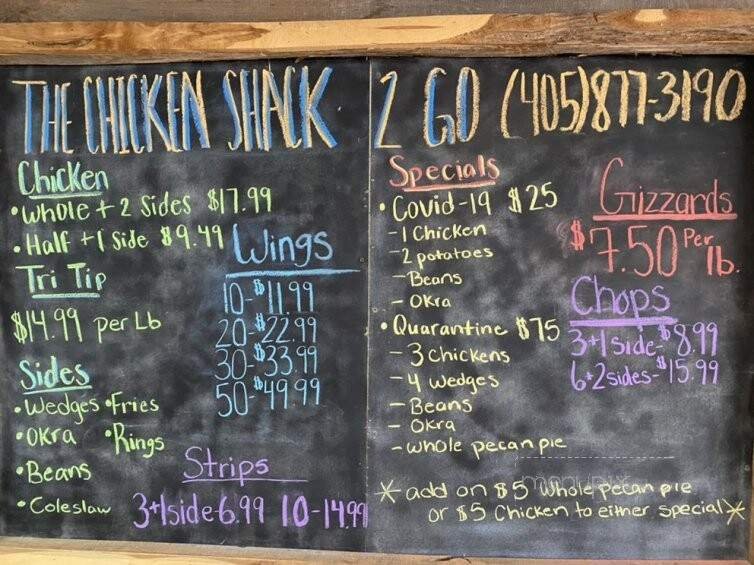 THE CHICKEN SHACK 2 GO (405)877-3190
Chicken
• Whole + 2 Sides $17.99
• Half + 1 Side $9.49
Tri Tip
$14.99 per Lb
Sides
• Wedges • Fries
• Okra • Rings
• Beans
• Coleslaw
Wings
10-$11.99
20-$22.99
30-$33.99
50-$49.99
Strips
3+1side-6.99 10-14.99
Specials
• Covid-19 $25
- 1 Chicken
- 2 potatoes
- Beans
- Okra
• Quarantine $75
- 3 chickens
- 4 wedges
- Beans
- Okra
- whole pecan pie
Gizzards
$7.50 Per lb.
Chops
3+1side-$8.99
6+2sides-$15.99
* add on $5 whole pecan pie
or $5 Chicken to either special *